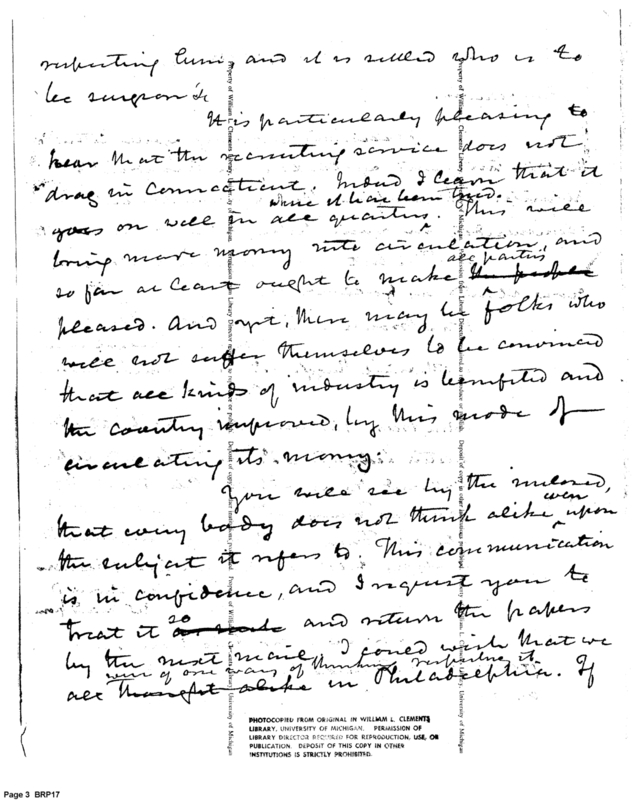 respecting him, and it is settled who is to
be surgeon &c
It is particularly pleasing to
hear that the recruiting service does not
drag in Connecticut. Indeed I learn that it
where it has been tried.
goes on well in all quarters. This will
bring more money into circulation, and
all parties
so far at least ought to make the people
pleased. And yet, there may be folks who
will not suffer themselves to be convinced
that all kinds of industry is benefited and
the country improved, by this mode of
circulating its money.
You will see by the inclosed,
even
that every body does not think alike upon
the subject it refers to. This communication
is in confidence, and I request you to
so
treat it and return the papers
by the next mail. I could wish that we
were of one way of thinking respecting it
all thought alike in Philadelphia. If
PHOTOCOPIED FROM ORIGINAL IN WILLIAM L. CLEMENTS
LIBRARY, UNIVERSITY OF MICHIGAN. PERMISSION OF
LIBRARY DIRECTOR REQUIRED FOR REPRODUCTION, USE, OR
PUBLICATION. DEPOSIT OF THIS COPY IN OTHER
INSTITUTIONS IS STRICTLY PROHIBITED.
Page 3 BRP17